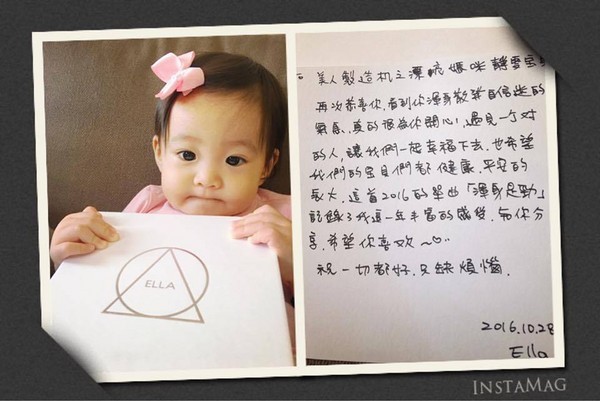 ELLA
美人製造机之漂 媽咪
再次恭喜你,看到你渾身散發自信迷的
氣息,真的很為你開心!遇見一个对
的人,讓我們一起幸福下去.也希望
我們的宝貝們都健康.平安的
長大.這首2016的單曲「渾身是勁」
記錄了我這一年丰富的感受.和你分
享.希望你喜欢~♡
祝一切都好,只缺煩惱.
2016.10.28
Ella
INSTAMAG